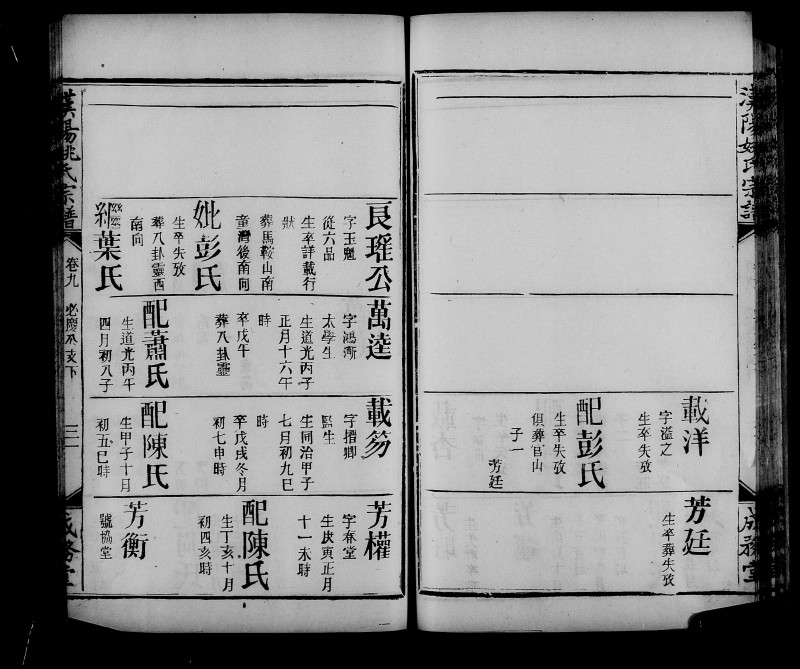 漢陽姚氏宗譜
成務堂
載洋
字溢之
生卒失攷
配彭氏
生卒失攷
俱葬官山
子一
芳廷
芳廷
生卒葬失攷
良璀公
字玉魁
從六品
生卒詳載行
狀
葬馬鞍山南
童灣後南向
妣彭氏
生卒失攷
葬八卦靈西
南向
葉氏
萬逵
字鴻漸
太學生
生道光丙子
正月十六午
時
卒戊午
葬八卦靈
配蕭氏
生道光丙午
四月初八子
載笏
字搢卿
監生
生同治甲子
七月初九巳
時
卒戊戌冬月
初七申時
配陳氏
生甲子十月
初五巳時
芳權
字春堂
生庚寅正月
十一未時
配陳氏
生丁亥十月
初四亥時
芳衡
號協堂
漢陽姚氏宗譜
卷九
必慶公支下
三一
成務堂